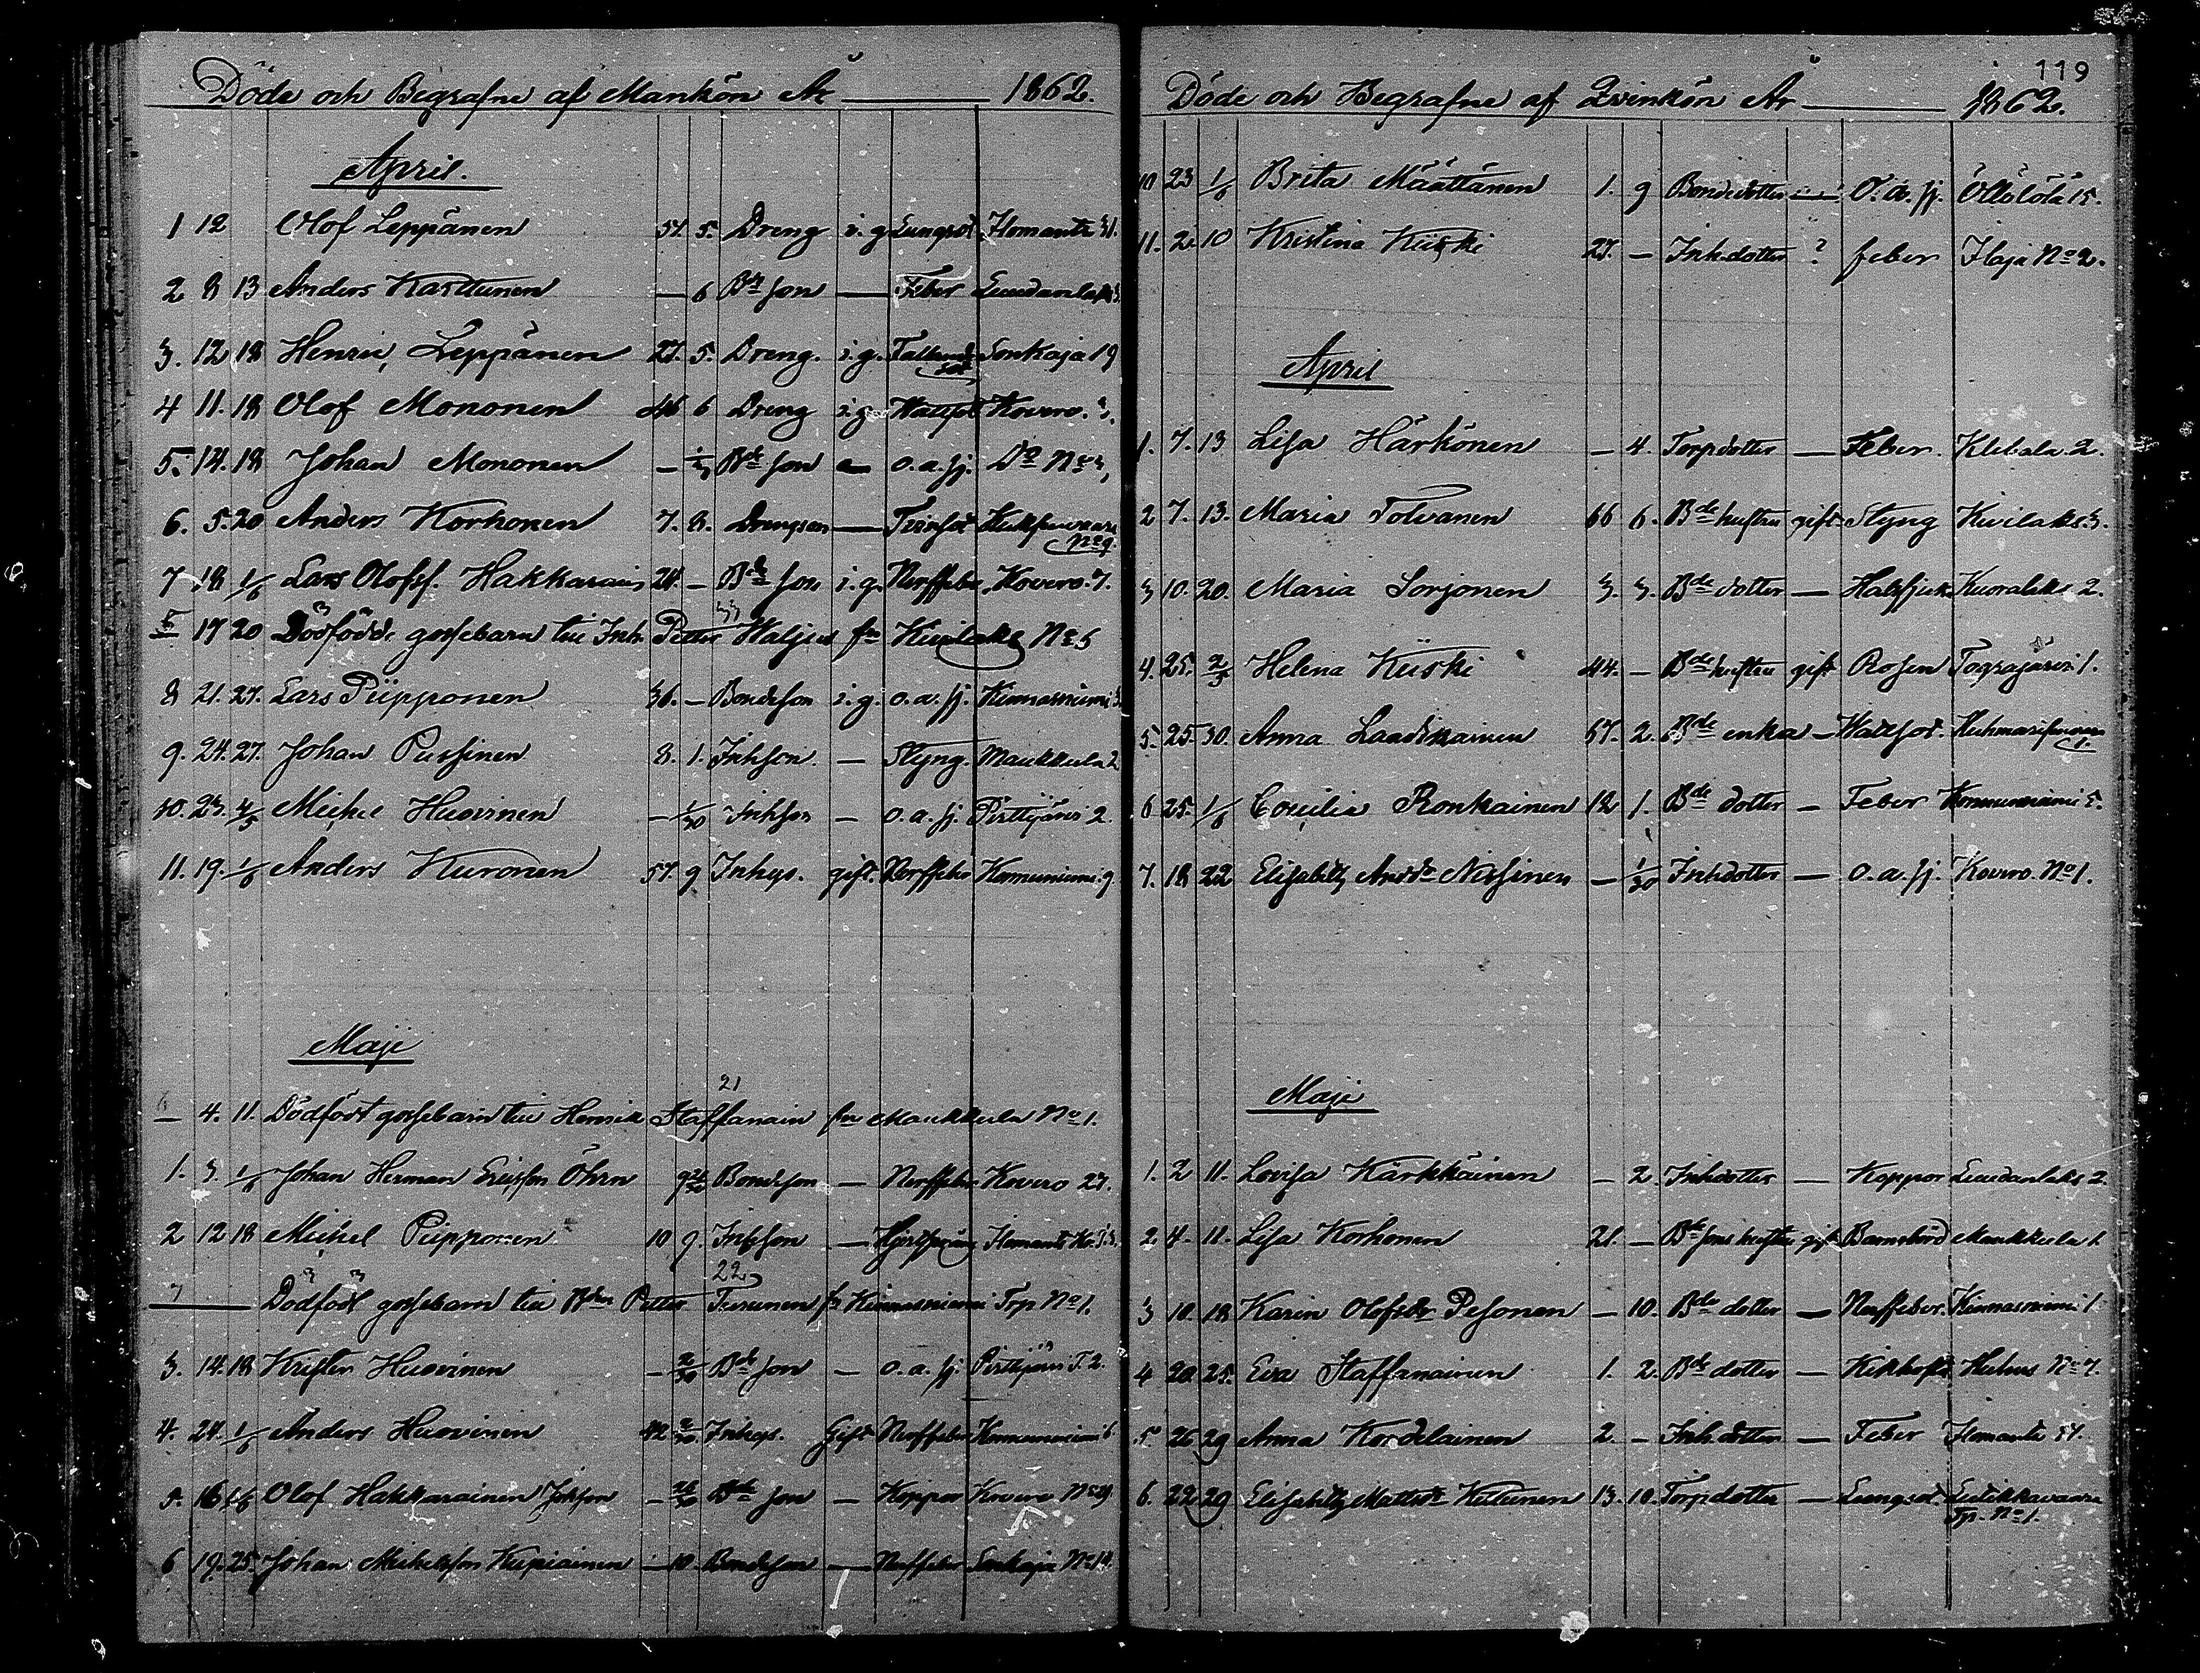 Döde och Begrafne af Mankön År 1862.
April.
1 12 Olof Leppänen 57. 5. Dreng i.g. Lungsot Ilomants 31.
2 8 13 Anders Karttunen — 6 Bde son — Feber Luudanlaks 3.
3. 12 18 Henric Leppänen 27. 5. Dreng. i.g. Fallandesot Sonkaja 19
4 11. 18 Olof Mononen 46 6 Dreng i.g. Wattsot Kovero. 3.
5. 14. 18 Johan Mononen — Bde son — o.a.sj. Do No 3,
6. 5. 20 Anders Korhonen 7. 8. Drengson —
No 9.
7 18 1/6 Lars Olofss. Hakkarain 24. — Bde son i.g. Nerffeber Kovero. 7.
5 17 20 Dödfödde gossebarn till Inh. Petter fr Kuuilaks No 5
8 21. 27. Lars Piipponen 36. — Bondeson i.g. o.a.sj. Kinnasniemi 3
9. 24. 27. Johan Pussinen 8. 1. Inhson. — Styng. Maukkula 2
10. 23. 4/5 Michel Huovinen — 1/30 Inhson — o.a.sj. Pirttijärvi 2.
11. 19. 1/6 Anders Kuronen 57. 9 Inhys. gift. Nerffeber Kornuniemi. 9.
Maji
21
6 — 4. 11. Dödfödt gossebarn till Henrik Staffanain fr Maukkula No 1.
1. 3. 1/6 Johan Herman Ericsson Öhrn 9 Bondeson — Nerffeber Kovero 27.
2 12 18 Michel Piipponen 10 9. Inhson — Ilomants
22
7 — Dödfödt gossebarn till Bden Petter Turunen fr Kinnasniemi Trp No 1.
3. 14. 18 Krister Huovinen — 2/30 Bde son — o.a.sj. Pirttijärvi T. 2.
4. 24. 1/6 Anders Huovinen 42 Inhys. Gift Nerffeber Kornuniemi 6
5. 16 1/6 Olof Hakkarainen — Bde son — Koppor Kovero No 29
6 19. 25. Johan Michelsson Kupiainen — 10. Bondeson — Nerffeber Sonkaja No 14.
119
Döde och Begrafne af Qvinkön År 1862.
10 23 1/6 Brita Määttänen 1. 9 Bondedotter — O.a.sj. Öllölälä 15.
11. 2. 10 Kristina Kiiski 27. — Inh.dotter ? feber Ilaja No 2.
April
1. 7. 13 Lisa Härkönen — 4. Torpdotter — Feber. Klebala 2.
2 7. 13. Maria Tolvanen 66 6. Bde hustru gift Styng Kivilaks. 3.
3 10. 20. Maria Sorjonen 3. 3. Bde dotter — Halssjuk Kuoralaks 2.
4. 25. 2/5 Helena Kiiski 44. — Bde hustru gift Rosen Tograjärvi 1.
5. 25. 30. Anna Laadikainen 67. 2. Bde enka — Wattsot.
6 25. 1/6 Cecilia Ronkainen 12 1. Bde dotter — Feber Kornuniemi 5.
7. 18 22 Elisabeth Andsdr Näsinen — 1/30 Inhdotter — o.a.sj. Kovero. No 1.
Maji
1. 2 11. Lovisa Kärkkäinen — 2. Inhdotter — Koppor Luudanlaks 2.
2. 4. 11. Lisa Korhonen 21. — Bde sons hustru gift Barnsbörd Maukkula 1.
3 10. 18 Karin Olofsdr Pesonen — 10. Bde dotter — Nerffeber. Kinnasniemi 1
4 20. 25. Eva Staffanainen 1. 2. Bde dotter — Kikhosta Huhus No 7.
5. 26 29 Anna Kordelainen 2. — Inh.dotter — Feber Ilomants 57.
6. 22 29 Elisabeth Mattsdr Kettunen 13. 10. Torpdotter — Lungsot. Lutikkavaara
Tp. No 1.